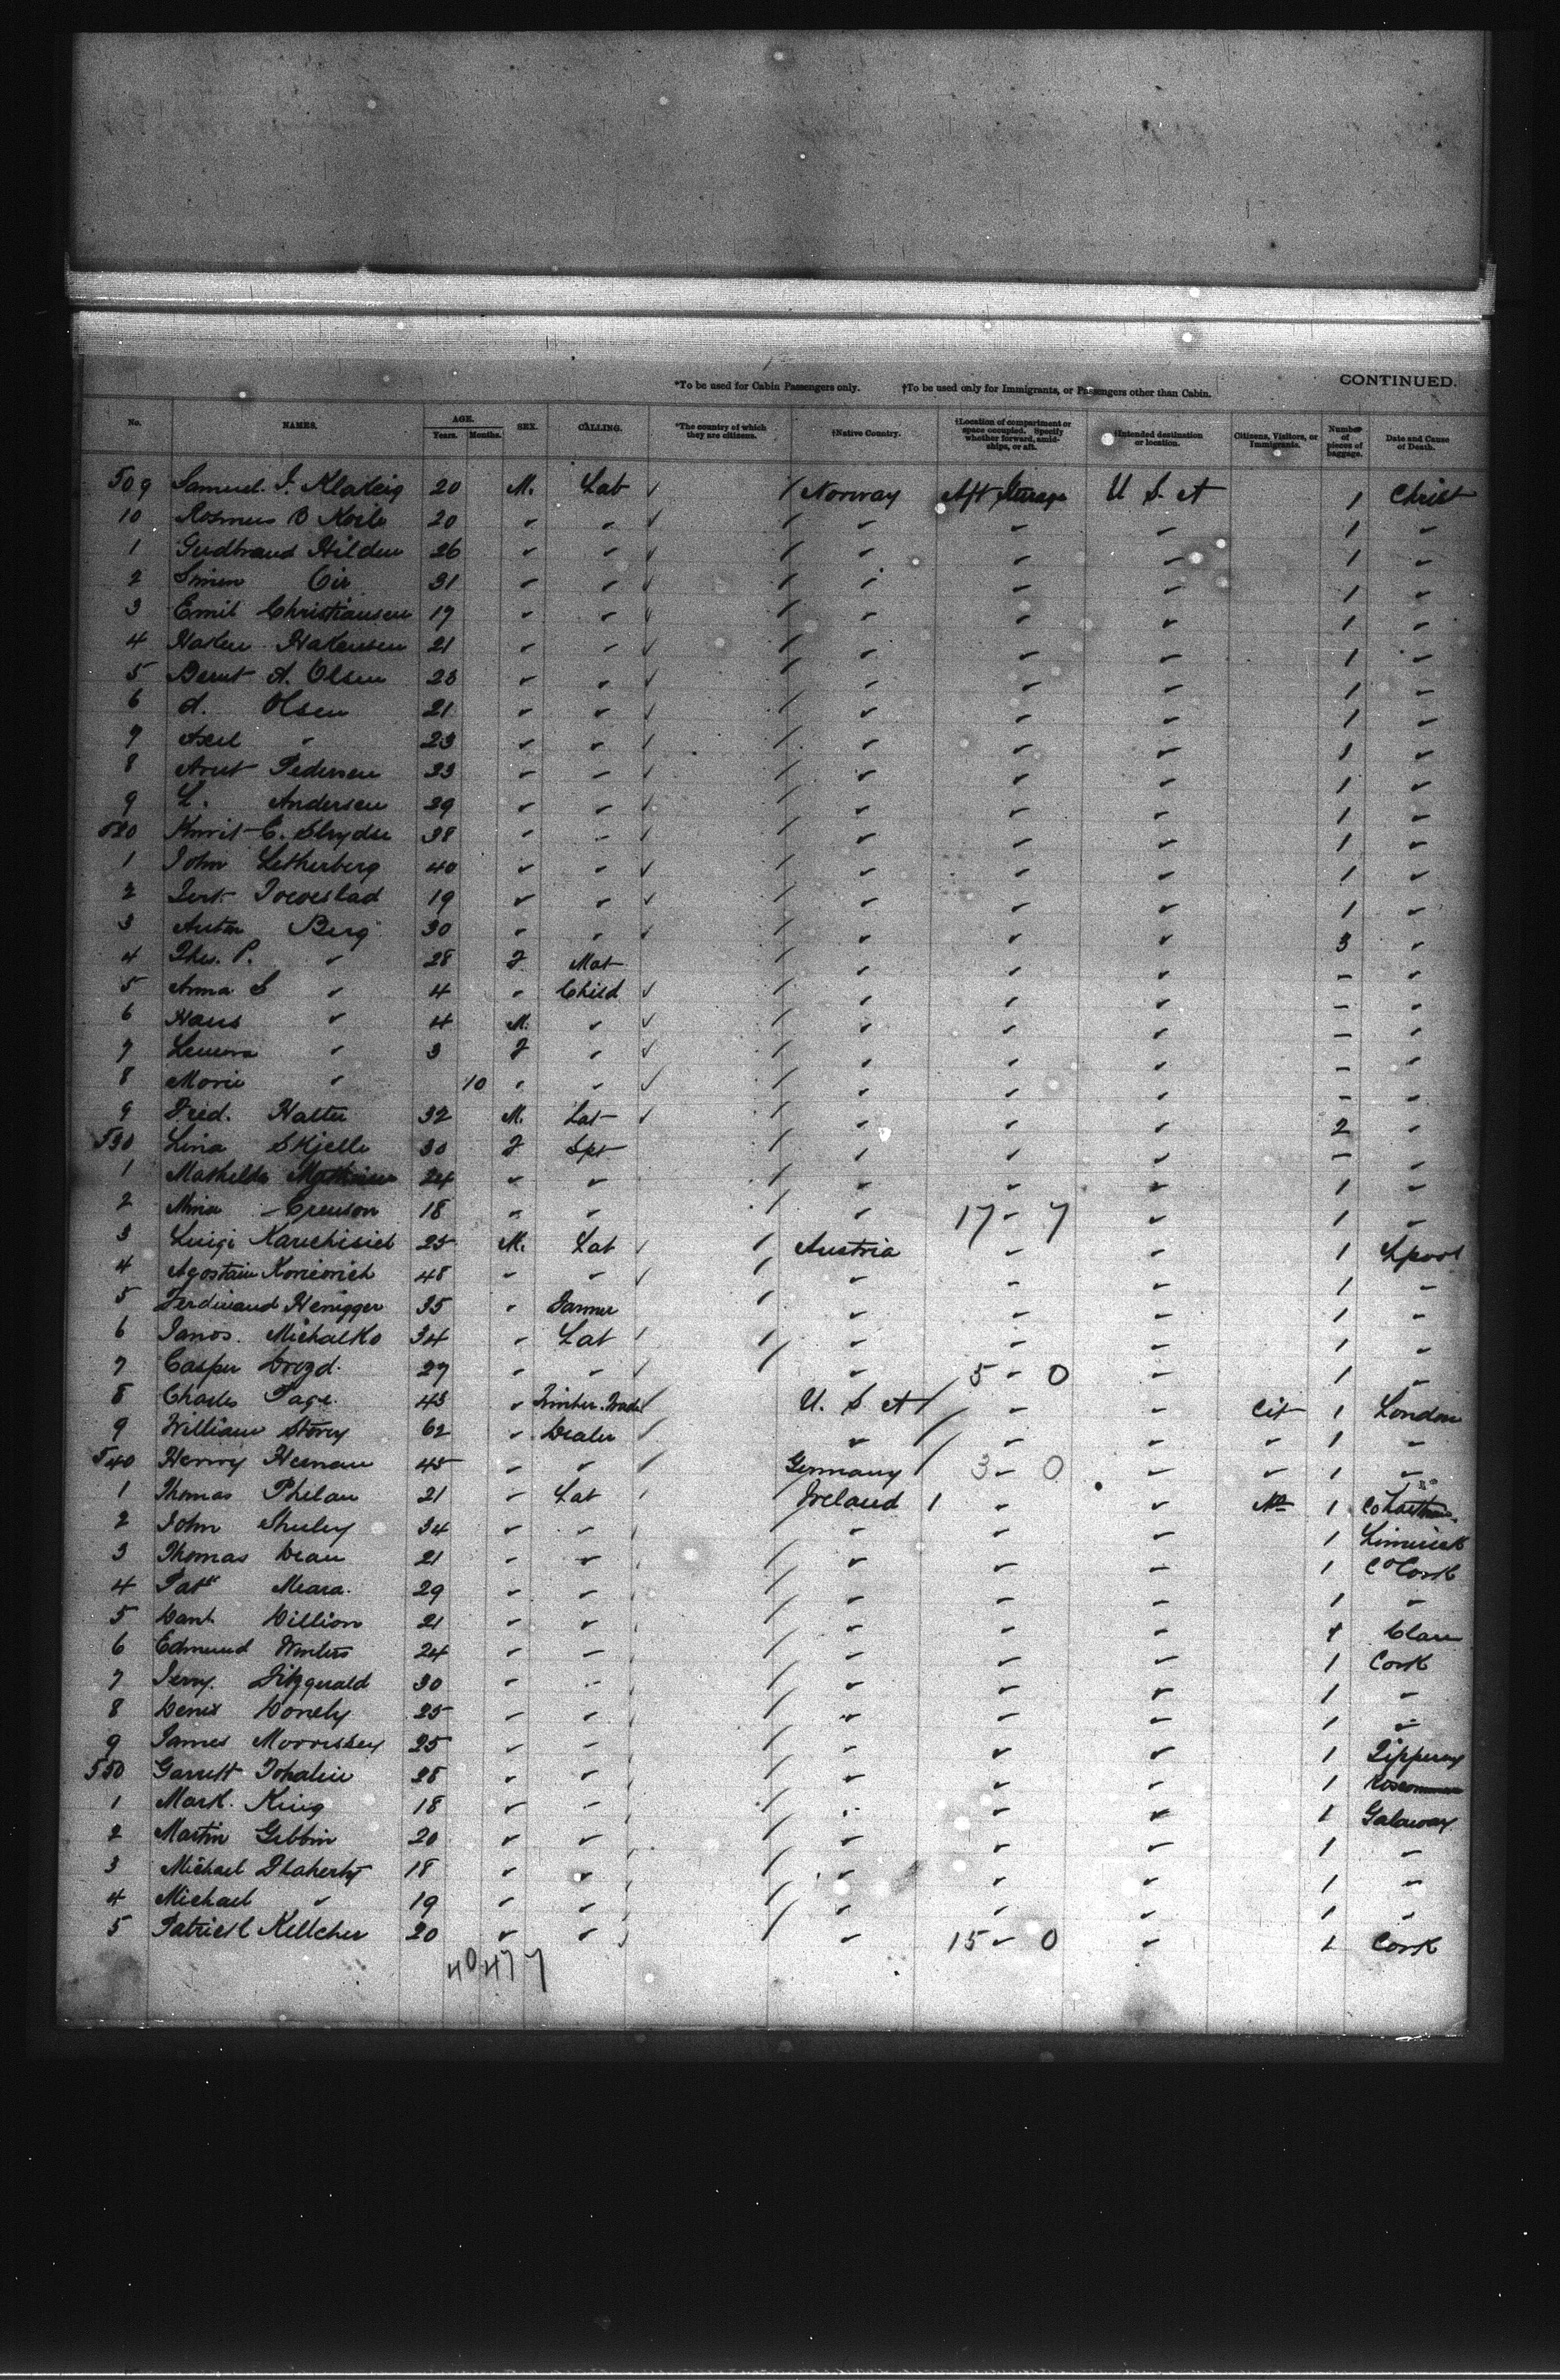 CONTINUED.
*To be used for Cabin Passengers only. †To be used only for Immigrants, or Passengers other than Cabin.
No. NAMES. AGE. Years. Months. SEX. CALLING. *The country of which they are citizens. †Native Country. †Location of compartment or space occupied. Specify whether forward, amidships, or aft. †Intended destination or location. Citizens, Visitors, or Immigrants. Number of pieces of baggage. Date and Cause of Death.
509 Samuel 20 M. Lab Norway Aft Steerage U S A 1 Christ
10 Rasmus B 20 " " " " " 1 "
1 Gudbrand Hilden 26 " " " " " 1 "
2 Simen 31 " " " " " 1 "
3 Emil Christiansen 17 " " " " " 1 "
4 Haken Hakensen 21 " " " " " 1 "
5 Bernt A. Olsen 23 " " " " " 1 "
6 A. Olsen 21 " " " " " 1 "
7 Axel " 23 " " " " " 1 "
8 Arnt Pedersen 33 " " " " " 1 "
9 L. Andersen 29 " " " " " 1 "
520 38 " " " " " 1 "
1 John Letherberg 40 " " " " " 1 "
2 19 " " " " " 1 "
3 Anton Berg 30 " " " " " 3 "
4 Thes. P. " 28 F Mat " " " – "
5 Anna S " 4 " Child " " " – "
6 Hans " 4 M. " " " " – "
7 " 3 F " " " " – "
8 " 10 " " " " " – "
9 Fred. 32 M. Lab " " " 2 "
530 Lina Skjelle 30 F Spt " " " – "
1 Mathilde 24 " " " " " 1 "
2 Mina 18 " " " 17 – 7 " 1 "
3 Luigi 25 M. Lab Austria " " 1 Lpool
4 48 " " " " " 1 "
5 Ferdinand Henigger 35 " Farmer " " " 1 "
6 Janos. Michalko 34 " Lab " " " 1 "
7 Casper Drozd. 27 " " " 5 – 0 " 1 "
8 Charles Page. 43 " U. S A " " Cit 1 London
9 William Storey 62 " Dealer " " " " 1 "
540 Henry 45 " " Germany 3 – 0 " " 1 "
1 Thomas Phelan 21 " Lab Ireland " " 1
2 John 34 " " " " " 1 Limerick
3 Thomas Dean 21 " " " " " 1 Co Cork
4 Patk Meara. 29 " " " " " 1 "
5 Danl. Dillion 21 " " " " " 1 Clare
6 Edmund Winters 24 " " " " " 1 Cork
7 Jerry. Fitzgerald 30 " " " " " 1 "
8 Denis Donely 25 " " " " " 1 "
9 James Morrissey 25 " " " " " 1 Tipperay
550 Garrett 28 " " " " " 1 Roscommon
1 Mark. King 18 " " " " " 1 Galaway
2 Martin Gibbin 20 " " " " " 1 "
3 Michael Flaherty 18 " " " " " 1 "
4 Michael " 19 " " " " " 1 "
5 Patrick Kellcher 20 " " " 15 – 0 " 1 Cork
40 47 7